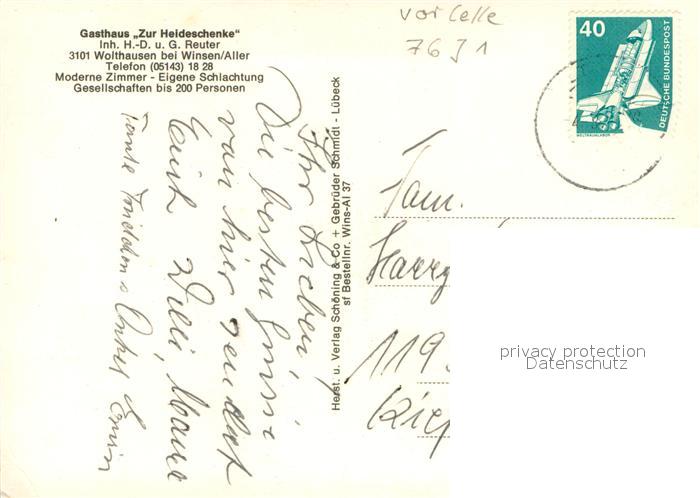 Gasthaus „Zur Heideschenke"
Inh. H.-D. u. G. Reuter
3101 Wolthausen bei Winsen/Aller
Telefon (05143) 18 28
Moderne Zimmer - Eigene Schlachtung
Gesellschaften bis 200 Personen
vor Celle
7631
40
DEUTSCHE BUNDESPOST
WELTRAUMLABOR
Ihr Lieben,
Die besten Grüsse
von hier sendet
Euch Willi,
Tante Onkel Erwin
Herst. u. Verlag Schöning & Co + Gebrüder Schmidt - Lübeck
sf Bestellnr. Wins-Al 37
Fam.
Harry
119.
privacy protection
Datenschutz